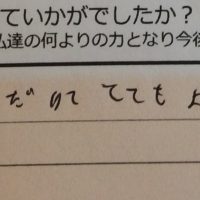 ていかがでしたか？
私達の何よりの力となり今後
だけて とても よ